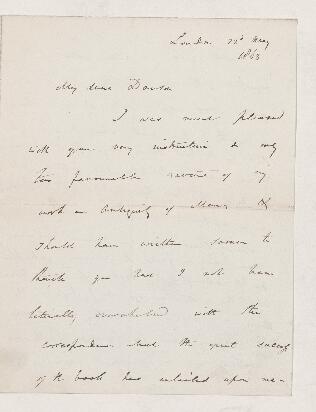 London 22d May
1863
My dear Dawson
I was much pleased
with your very instructive & only
too favourable review of my
work on Antiquity of Man &
should have written sooner to
thank you had I not been
literally overwhelmed with the
correspondence which the great success
of the book has entailed upon me—